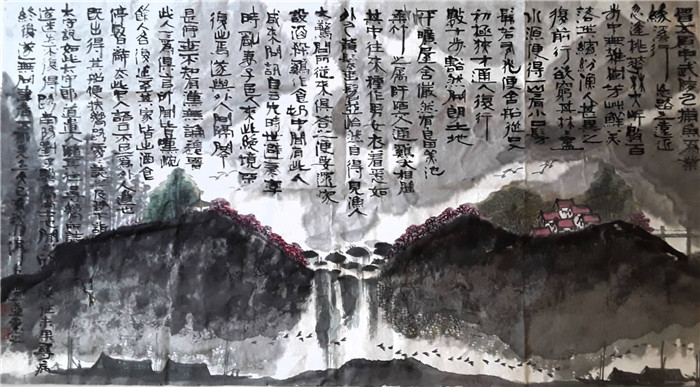 晉太元中武陵人捕魚為業
緣溪行忘路之遠近
忽逢桃花林夾岸數百
步中無雜樹芳草鮮美
落英繽紛漁人甚異之
復前行欲窮其林林盡
水源便得一山山有小口髣
髴若有光便舍船從口入
初極狹才通人復行
數十步豁然開朗土地
平曠屋舍儼然有良田美池
桑竹之屬阡陌交通雞犬相聞
其中往來種作男女衣着悉如
外人黃髮垂髫并怡然自樂見漁人
大驚問所從來俱答之便要還家
設酒殺雞作食村中聞有此人
咸來問訊自云先世避秦
時亂率妻子邑人來此絕境不
復出焉遂與外人間隔問
是何世乃不知有漢無論魏晉
此人一一為具言所聞皆嘆惋
餘人各復延至其家皆出酒食
停數日辭去此中人語云不足為外人道也
既出得其船便扶向路處處誌之及郡下
太守說如此太守即遣人隨其往尋向所誌
遂迷不復得路南陽劉子驥高尚士也
終後遂無問津者